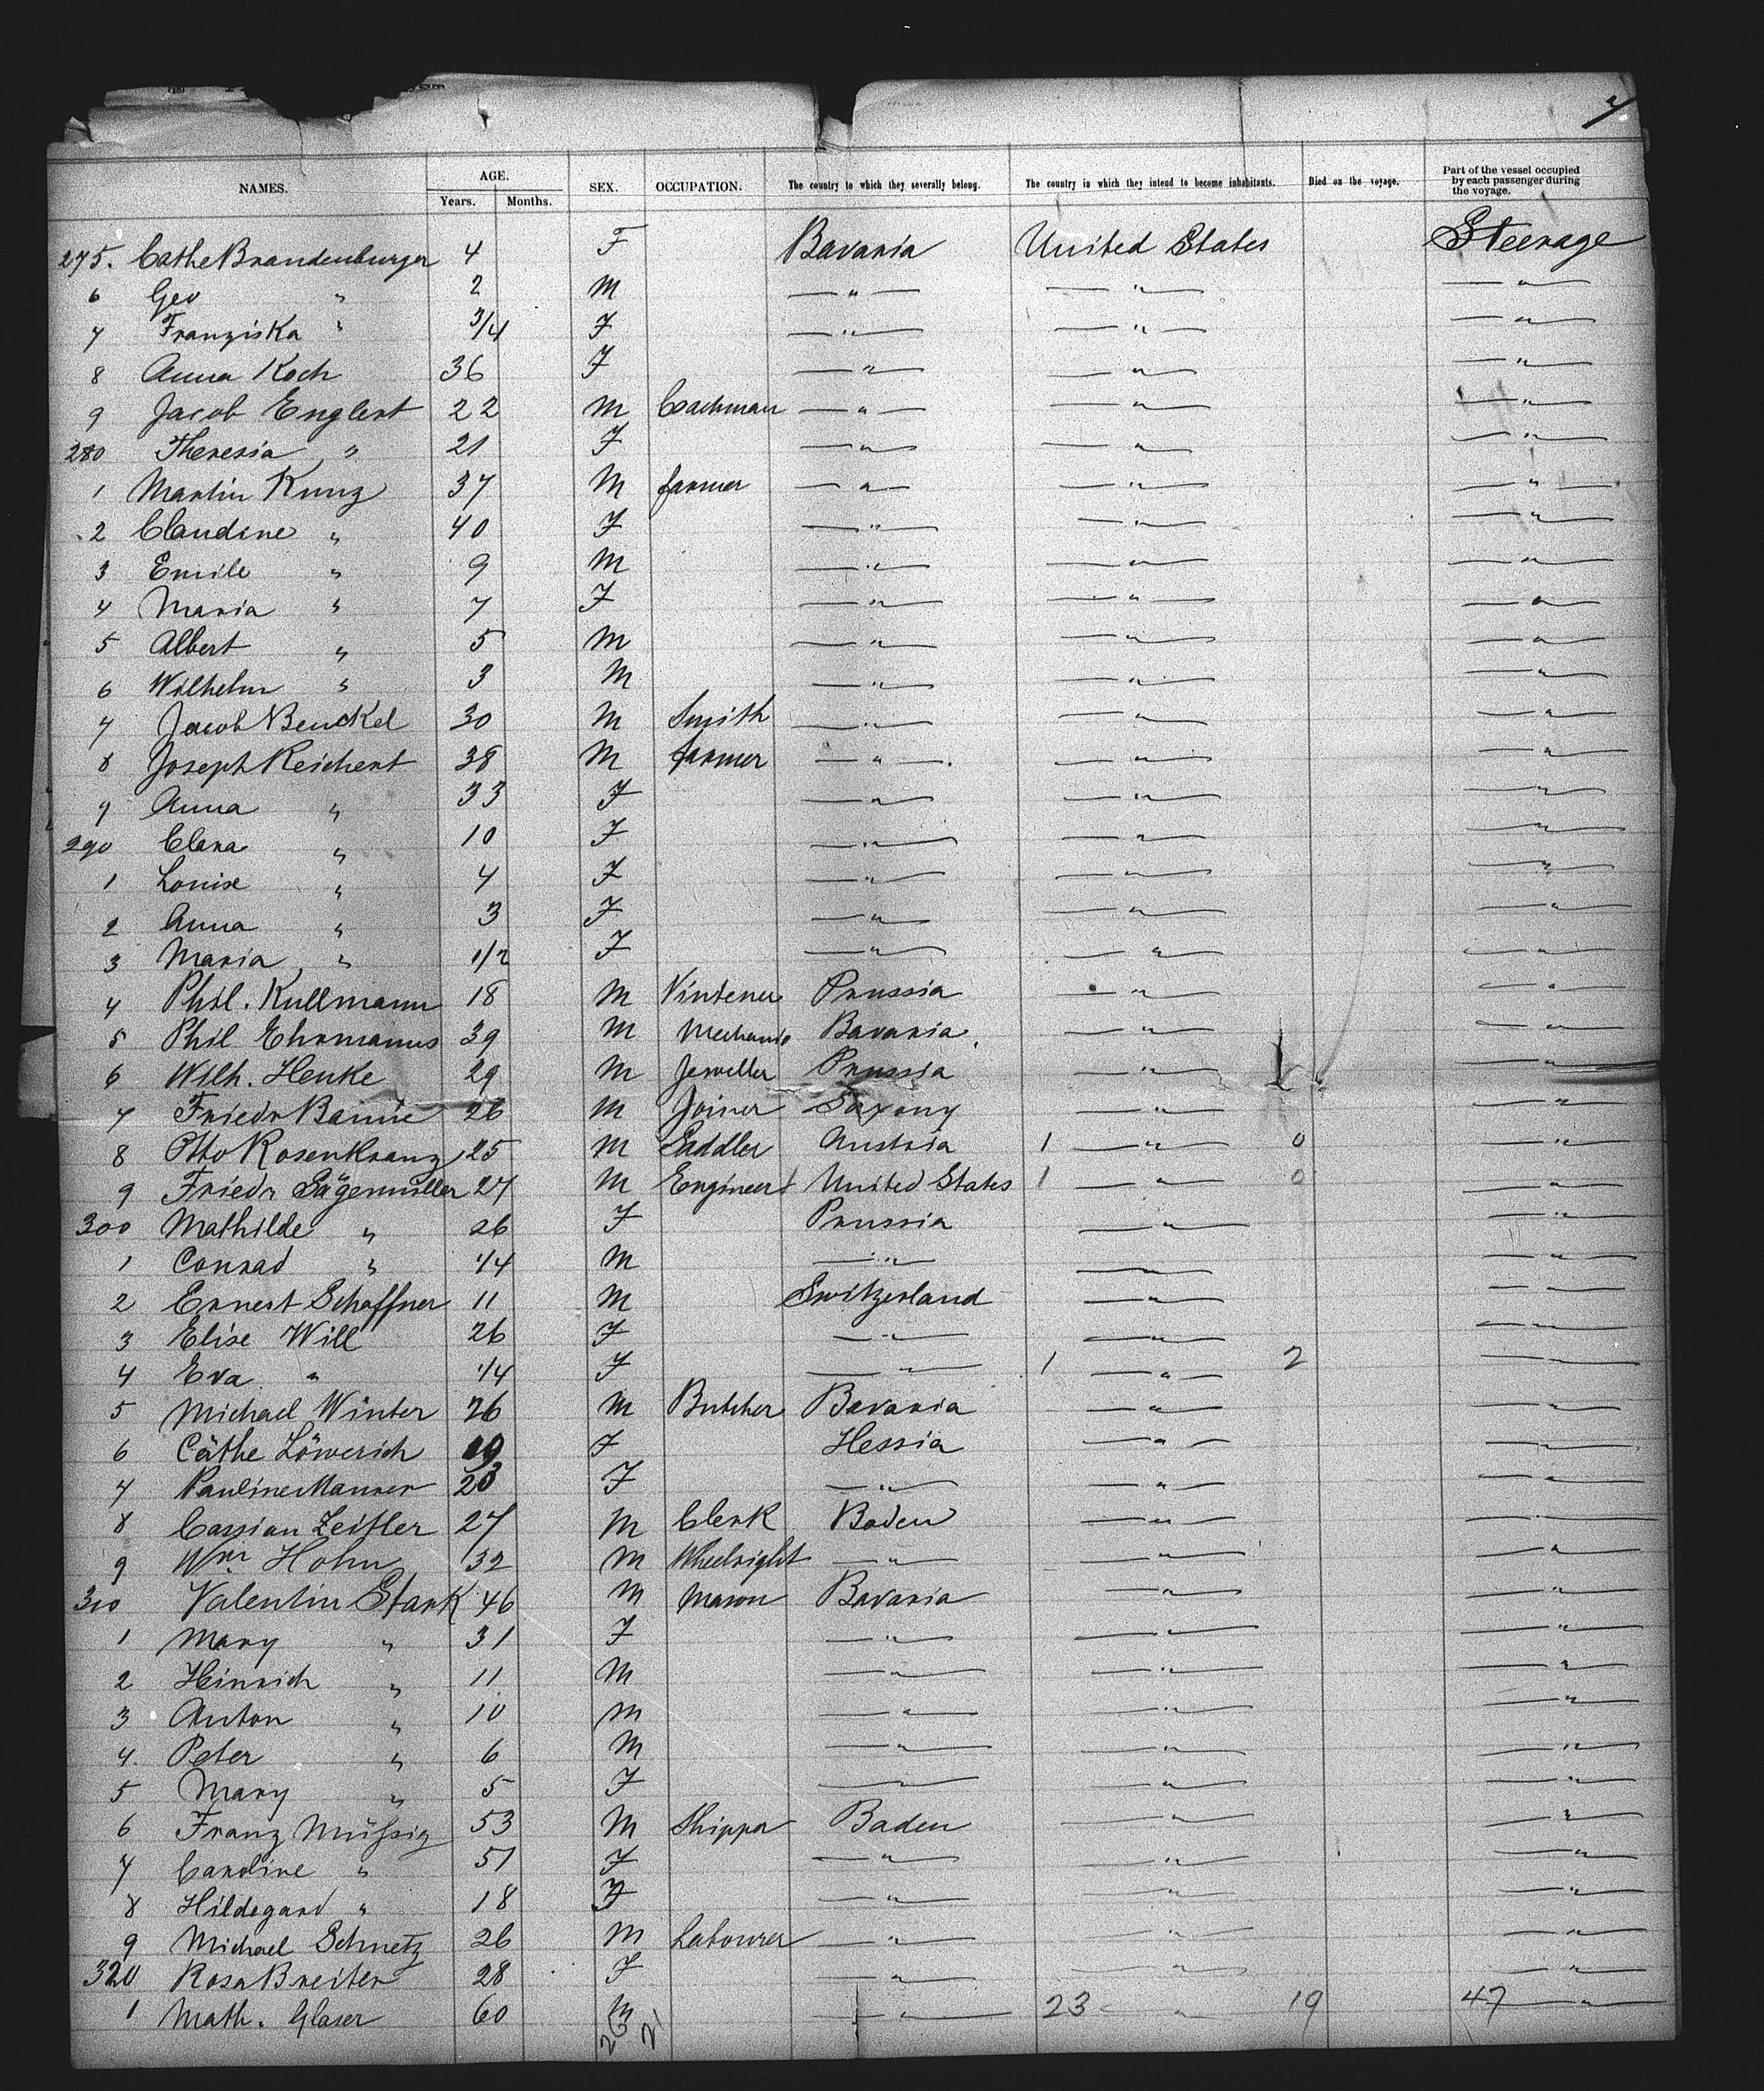 NAMES. AGE. Years. Months. SEX. OCCUPATION. The country to which they severally belong. The country in which they intend to become inhabitants. Died on the voyage. Part of the vessel occupied by each passenger during the voyage.
275. Cathe Brandenburger 4 F Bavaria United States Steerage
6 Geo " 2 M " " "
7 Franziska " 3/4 F " " "
8 Anna Koch 36 F " " "
9 Jacob Englert 22 M Coachman " " "
280 Theresia " 21 F " " "
1 Martin Kunz 37 M farmer " " "
2 Claudine " 40 F " " "
3 Emile " 9 M " " "
4 Maria " 7 F " " "
5 Albert " 5 M " " "
6 Wilhelm " 3 M " " "
7 Jacob Benckel 30 M Smith " " "
8 Joseph Reichert 38 M farmer " " "
9 Anna " 33 F " " "
290 Clara " 10 F " " "
1 Louise " 4 F " " "
2 Anna " 3 F " " "
3 Maria " 1/2 F " " "
4 Phil. Kullmann 18 M Vintener Prussia " "
5 Phil Ehrmanns 39 M Mechanic Bavaria " "
6 Wilh. Henke 29 M Jeweller Prussia " "
7 Friedr 26 M Joiner Saxony " "
8 Otto Rosenkranz 25 M Saddler Austria 1 " 0 "
9 Friedr Sägemüller 27 M Engineer United States 1 " 0 "
300 Mathilde " 26 F Prussia " "
1 Conrad " 1/4 M " " "
2 Ernest Schaffner 11 M Switzerland " "
3 Elise Will 26 F " " "
4 Eva " 1/4 F " 1 " 2 "
5 Michael Winter 26 M Butcher Bavaria " "
6 Cäthe Löwerich 19 F Hessia " "
7 Pauline Maurer 23 F " " "
8 Cassian Zeitler 27 M Clerk Baden " "
9 Wm Hohn 32 M Wheelright " " "
310 Valentin Stark 46 M Mason Bavaria " "
1 Mary " 31 F " " "
2 Heinrich " 11 M " " "
3 Anton " 10 M " " "
4. Peter " 6 M " " "
5 Mary " 5 F " "
6 Franz Müßig 53 M Shipper Baden " "
7 Caroline " 51 F " " "
8 Hildegard " 18 F " " "
9 Michael Schmetz 26 M Labourer " " "
320 Rosa Breiter 28 F " " "
1 Math. Glaser 60 M " 23 " 19 47 "
26 21